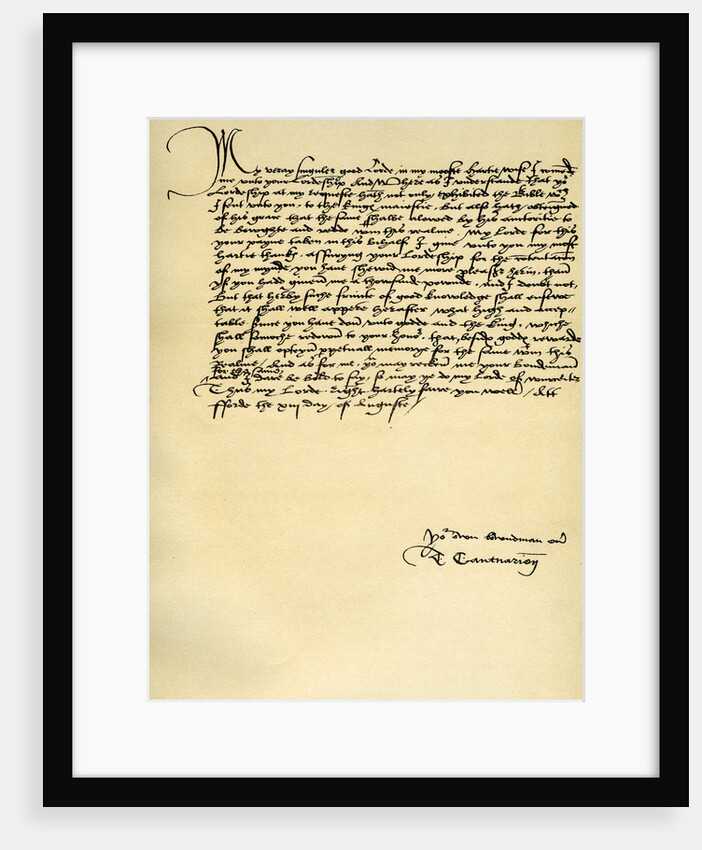 My veray singuler good Lorde, in my mooste hartie wise I comend
me unto your Lordeship. And Whereas I understande that yor
Lordeship at my requeste hath not only exhibited the Bible wch
I sent unto you, to the Kinges maiestie, but also hath obteigned
of his grace that the same shalbe alowed by his auctoritie to
be boughte and redde wtin this realme. My Lorde for this
your payne taken in this behalf I give unto you my most
hartie thanks, assuryng your Lordeship for the contentacon
of my mynde, you have shewid me more pleasr herin, than
If you hadd given me a thousand pownde, and I doubt not,
but that herby suche fruicte of good knowledge shall ensewe
that it shall well appere herafter what high and accep-
table srvice you have don unto godde and the King, whiche
shall somoche redown to your honor, that, beside godds rewarde
you shall opteyn ppetuall memorye for the same wtin this
Realme. And as for me, ye may recken me your bondeman
for the same
and I dare be bold to say, so may ye do my Lorde of wurceter
Thus my Lorde right hartely fare you well. Att
fforde the xiii day of Auguste
Yor own bowndman ever
T Cantuarien